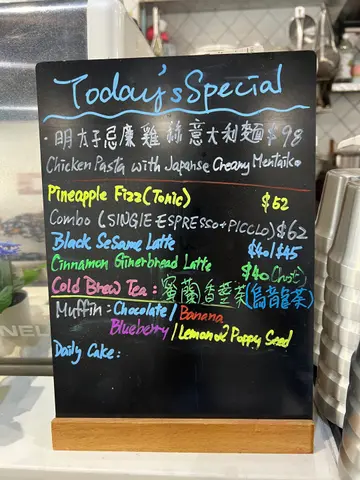 Today's Special
· 明太子忌廉雞絲意大利麵 $98
Chicken Pasta with Japanse Creamy Mentaiko
Pineapple Fizz (Tonic) $52
Combo (SINGlE ESPRESSO+PICCLO) $62
Black Sesame Latte $40/$45
Cinnamon Ginerbread Latte $40 (hot)
Cold Brew Tea: 蜜蘭香 (烏龍茶)
Muffin: Chocolate / Banana
Blueberry / Lemon & Poppy Seed
Daily Cake: